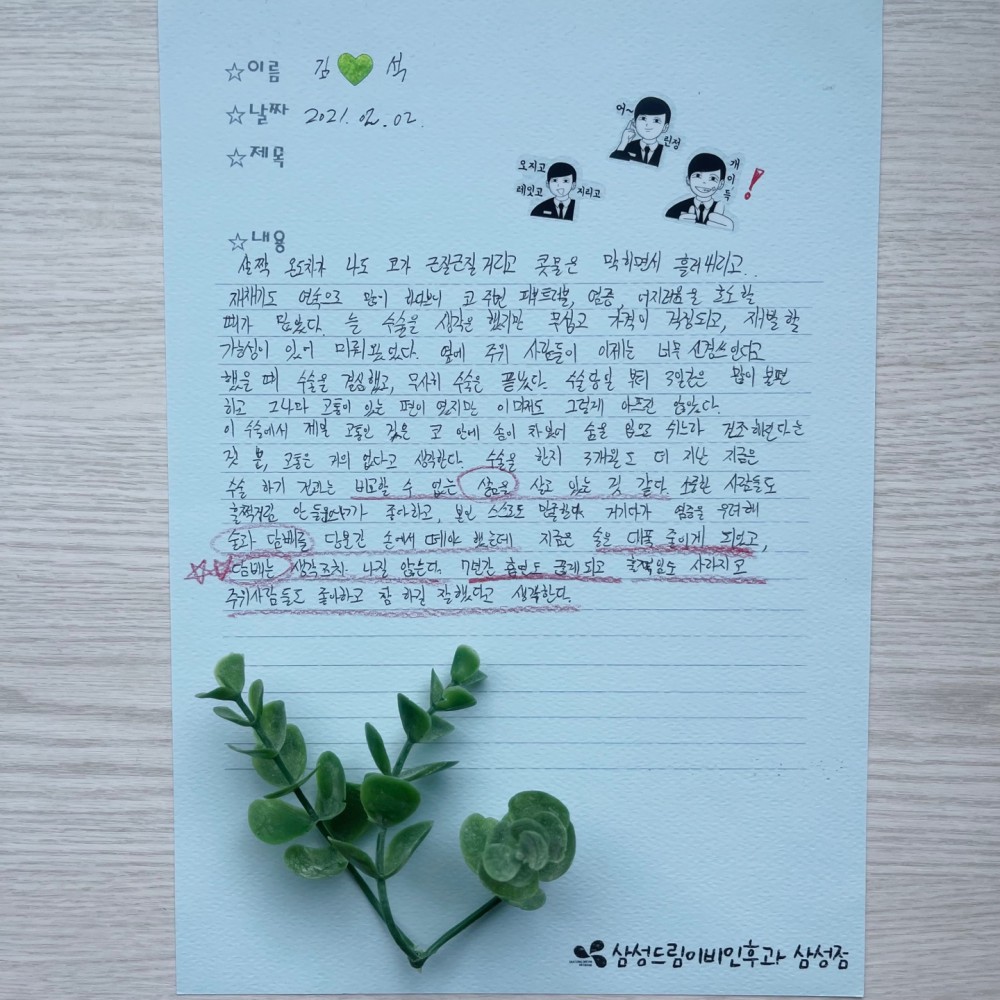 ☆이름 김 석
☆날짜 2021. 02. 02.
☆제목
어~
인정
오지고
레잇고
지리고
개이득!
☆내용
살짝 온도차가 나도 코가 근질근질거리고 콧물은 막히면서 흘러내리고..
재채기도 연속으로 많이 나오더니 코 주변 피부트러블, 염증, 어지러움을 호소할
때가 많았다. 늘 수술을 생각은 했지만 무섭고 가격이 걱정되고, 재발할
가능성이 있어 미뤄왔었다. 옆에 주위 사람들이 이제는 너무 신경쓰인다고
했을 때 수술을 결심했고, 무사히 수술은 끝났다. 수술당일 부터 3일간은 많이 불편
하고 그나마 고통이 있는 편이 였지만 이마저도 그렇게 아프진 않았다.
이 수술에서 제일 고통인 것은 코 안에 솜이 차 있어 숨을 입으로 쉬느라 건조해진다는
것 뿐, 고통은 거의 없다고 생각한다. 수술을 한지 3개월도 더 지난 지금은
수술 하기 전과는 비교할 수 없는 삶을 살고 있는 것 같다. 소중한 사람들도
훌쩍거림 안 들려서 좋아하고, 본인 스스로도 만족한다. 거기다가 염증을 우려해
술과 담배를 당분간 손에서 떼야 했는데 지금은 술을 대폭 줄이게 되었고,
담배는 생각조차 나질 않는다. 7년간 흡연도 끊게되고 훌쩍임도 사라지고
주위사람들도 좋아하고 참 하길 잘했다고 생각한다.
삼성드림이비인후과 삼성점